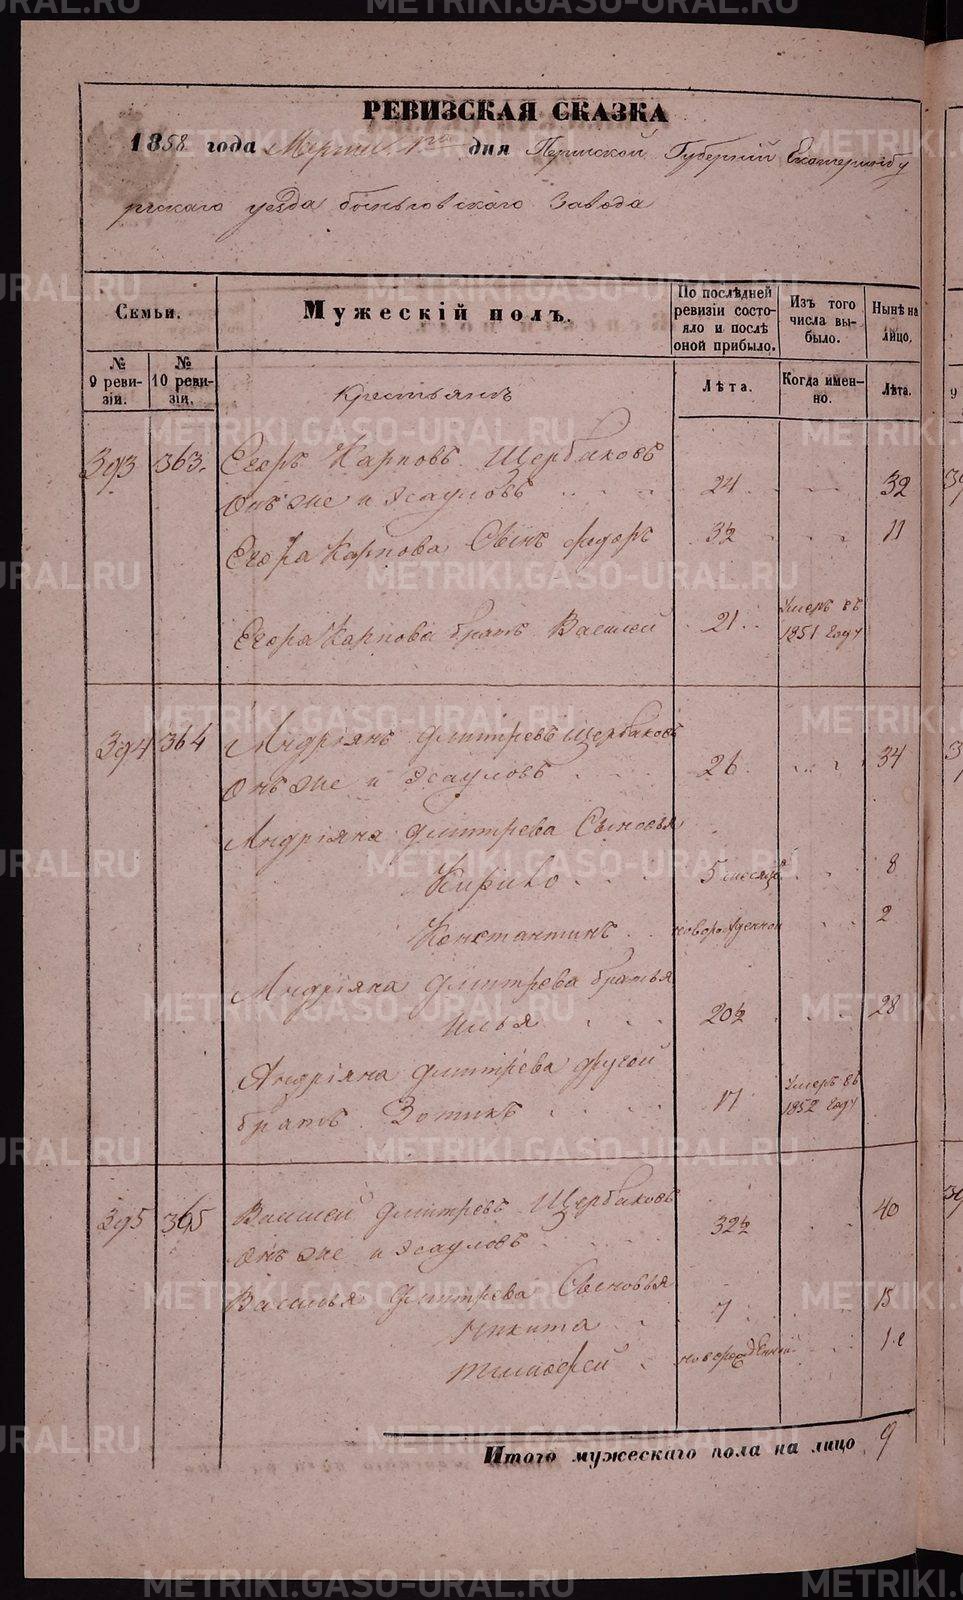 РЕВИЗСКАЯ СКАЗКА
1858 года Марта 1го дня Пермской Губерніи Екатеринбу
ргскаго уезда быньговскаго Завода
Семьи.
Мужескій полъ.
По послѣдней ревизіи состояло и послѣ оной прибыло.
Изъ того числа выбыло.
Нынѣ на лицо,
№ 9 ревизіи.
№ 10 ревизіи.
Крестьянъ
Лѣта.
Когда именно.
Лѣта.
393 363. Егоръ Карповъ Щербаковъ
Онъ же и Эсауловъ 24 32
Егора Карпова Сынъ федоръ 3½ 11
Егора Карпова братъ Василей 21 Умеръ въ 1851 году
394 364 Андріянъ дмитревъ Щербаковъ
Онъ же и Эсауловъ 26 34
Андріяна дмитрева Сыновья
Кирико 5 месяцъ 8
Константинъ новорожденной 2
Андріяна дмитрева братья
Илья 20½ 28
Андріяна дмитрева другой
братъ Зотикъ 17 Умеръ въ 1852 году
395 365 Васшлей дмитревъ Щербаковъ
Онъ же и Эсауловъ 32½ 40
Василья дмитрева Сыновья
Никита 7 15
Тимофей новорожденной
Итого мужескаго пола на лицо 9
METRIKI.GASO-URAL.RU